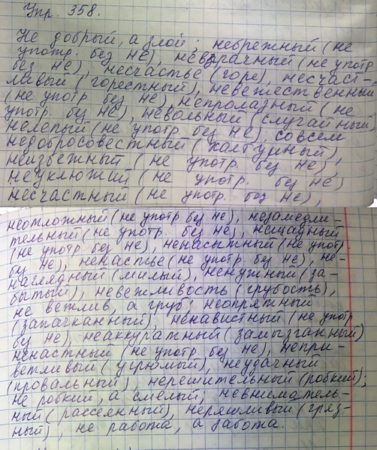 Упр. 358.
Не добрый, а злой; небрежный (не
употр. без не), невзрачный (не употр
без не), несчастье (горе), несчаст-
ливый (горестный), невежественный
(не употр. без не), непролазный (не
употр. без не), невольный (случайный)
нелепый (не употр. без не), совсем
недобросовестный (халтурный),
неизбежный (не употр. без не),
неуклюжий (не употр. без не)
несчастный (не употр. без не),
неотложный (не употр без не), незамедли-
тельный (не употр. без не), нещадный
(не употр без не), ненасытный (не употр
без не), ненастье (не употр. без не), не-
наглядный (милый), ненужный (за-
бытый), невежливость (грубость),
не вежлив, а груб, неопрятный
(запачканный), ненавистный (не употр
без не), неаккуратный (замызганный)
ненастный (не употр. без не), непри-
ветливый (угрюмый), неудачный
(провальный), нерешительный (робкий);
не робкий, а смелый; невниматель-
ный (рассеянный), неряшливый (гряз-
ный), не работа, а забота.